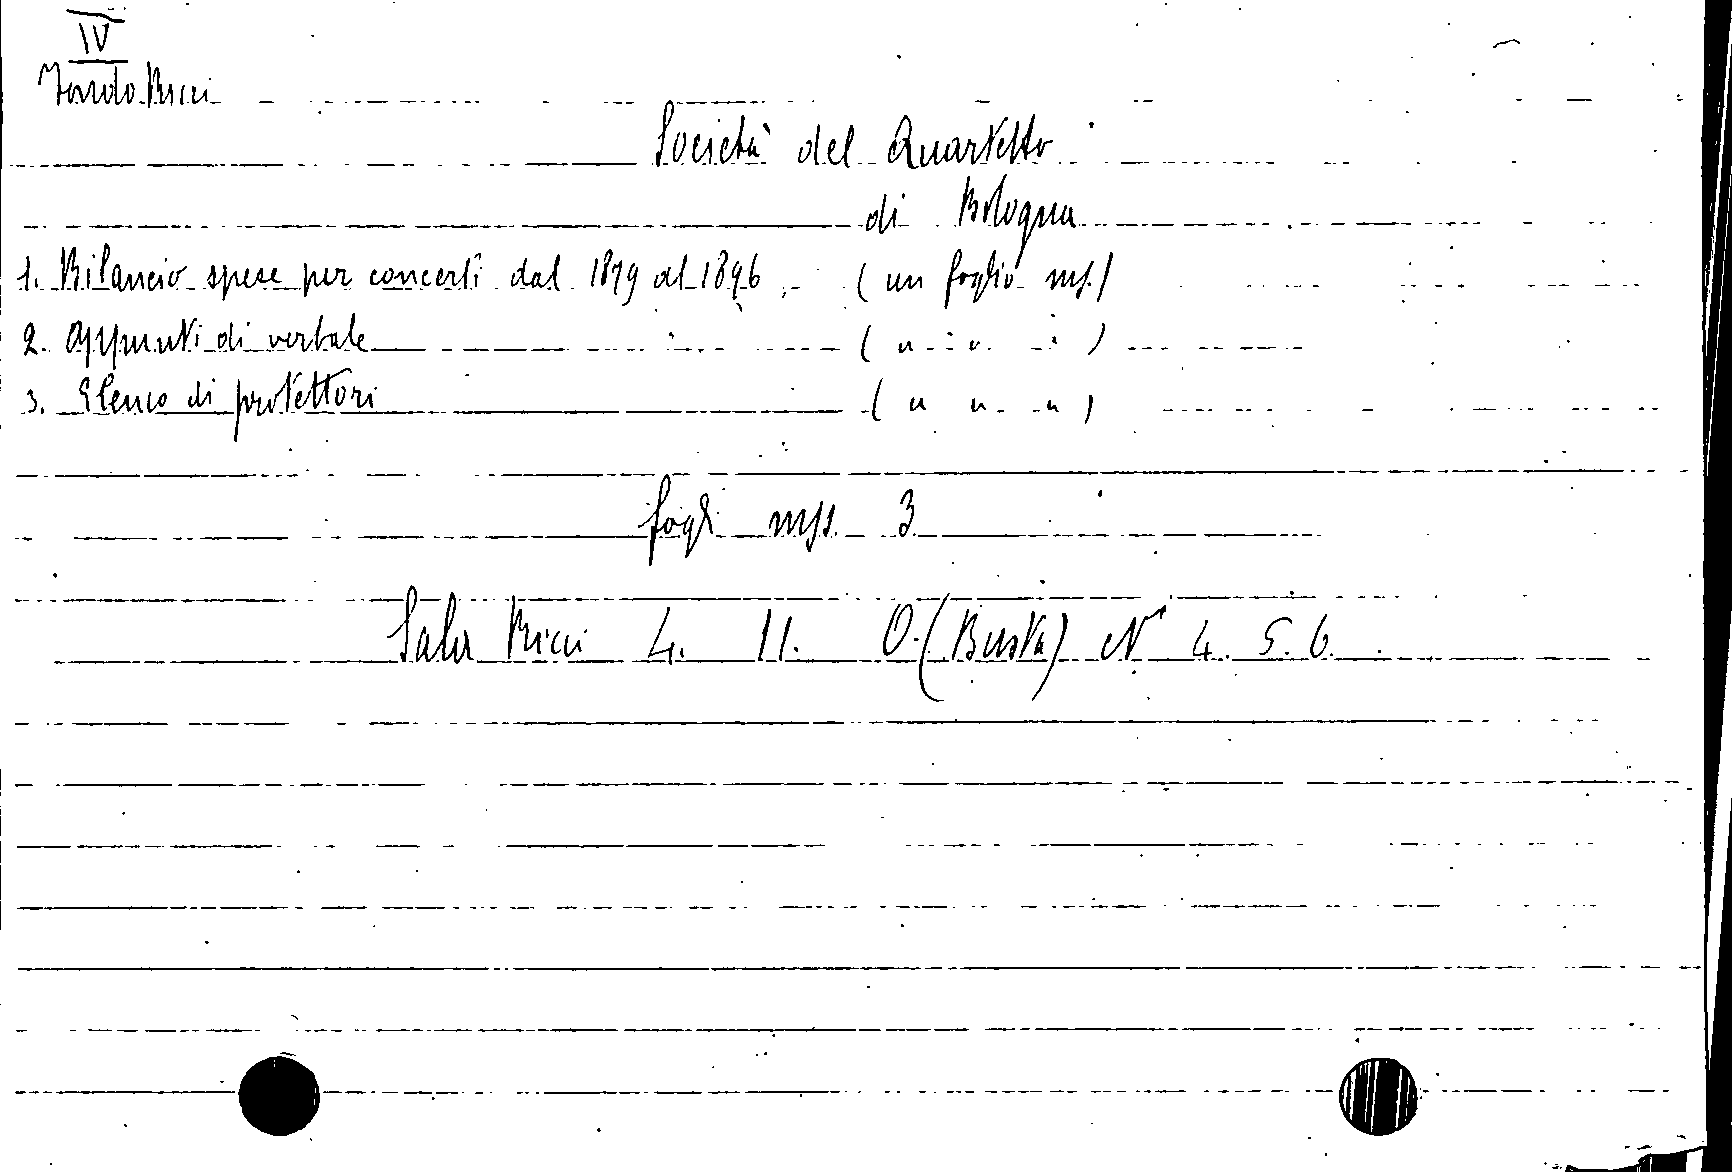 IV
Fondo Ricci
Società del Quartetto
di Bologna
1. Bilancio spese per concerti dal 1879 al 1896. (un foglio ms.)
2. Appunti di verbale ( " " " )
3. Elenco di protettori ( " " " )
fogli mss. 3
Sala Ricci 4. 11. O. (Busta) N° 4. 5. 6.